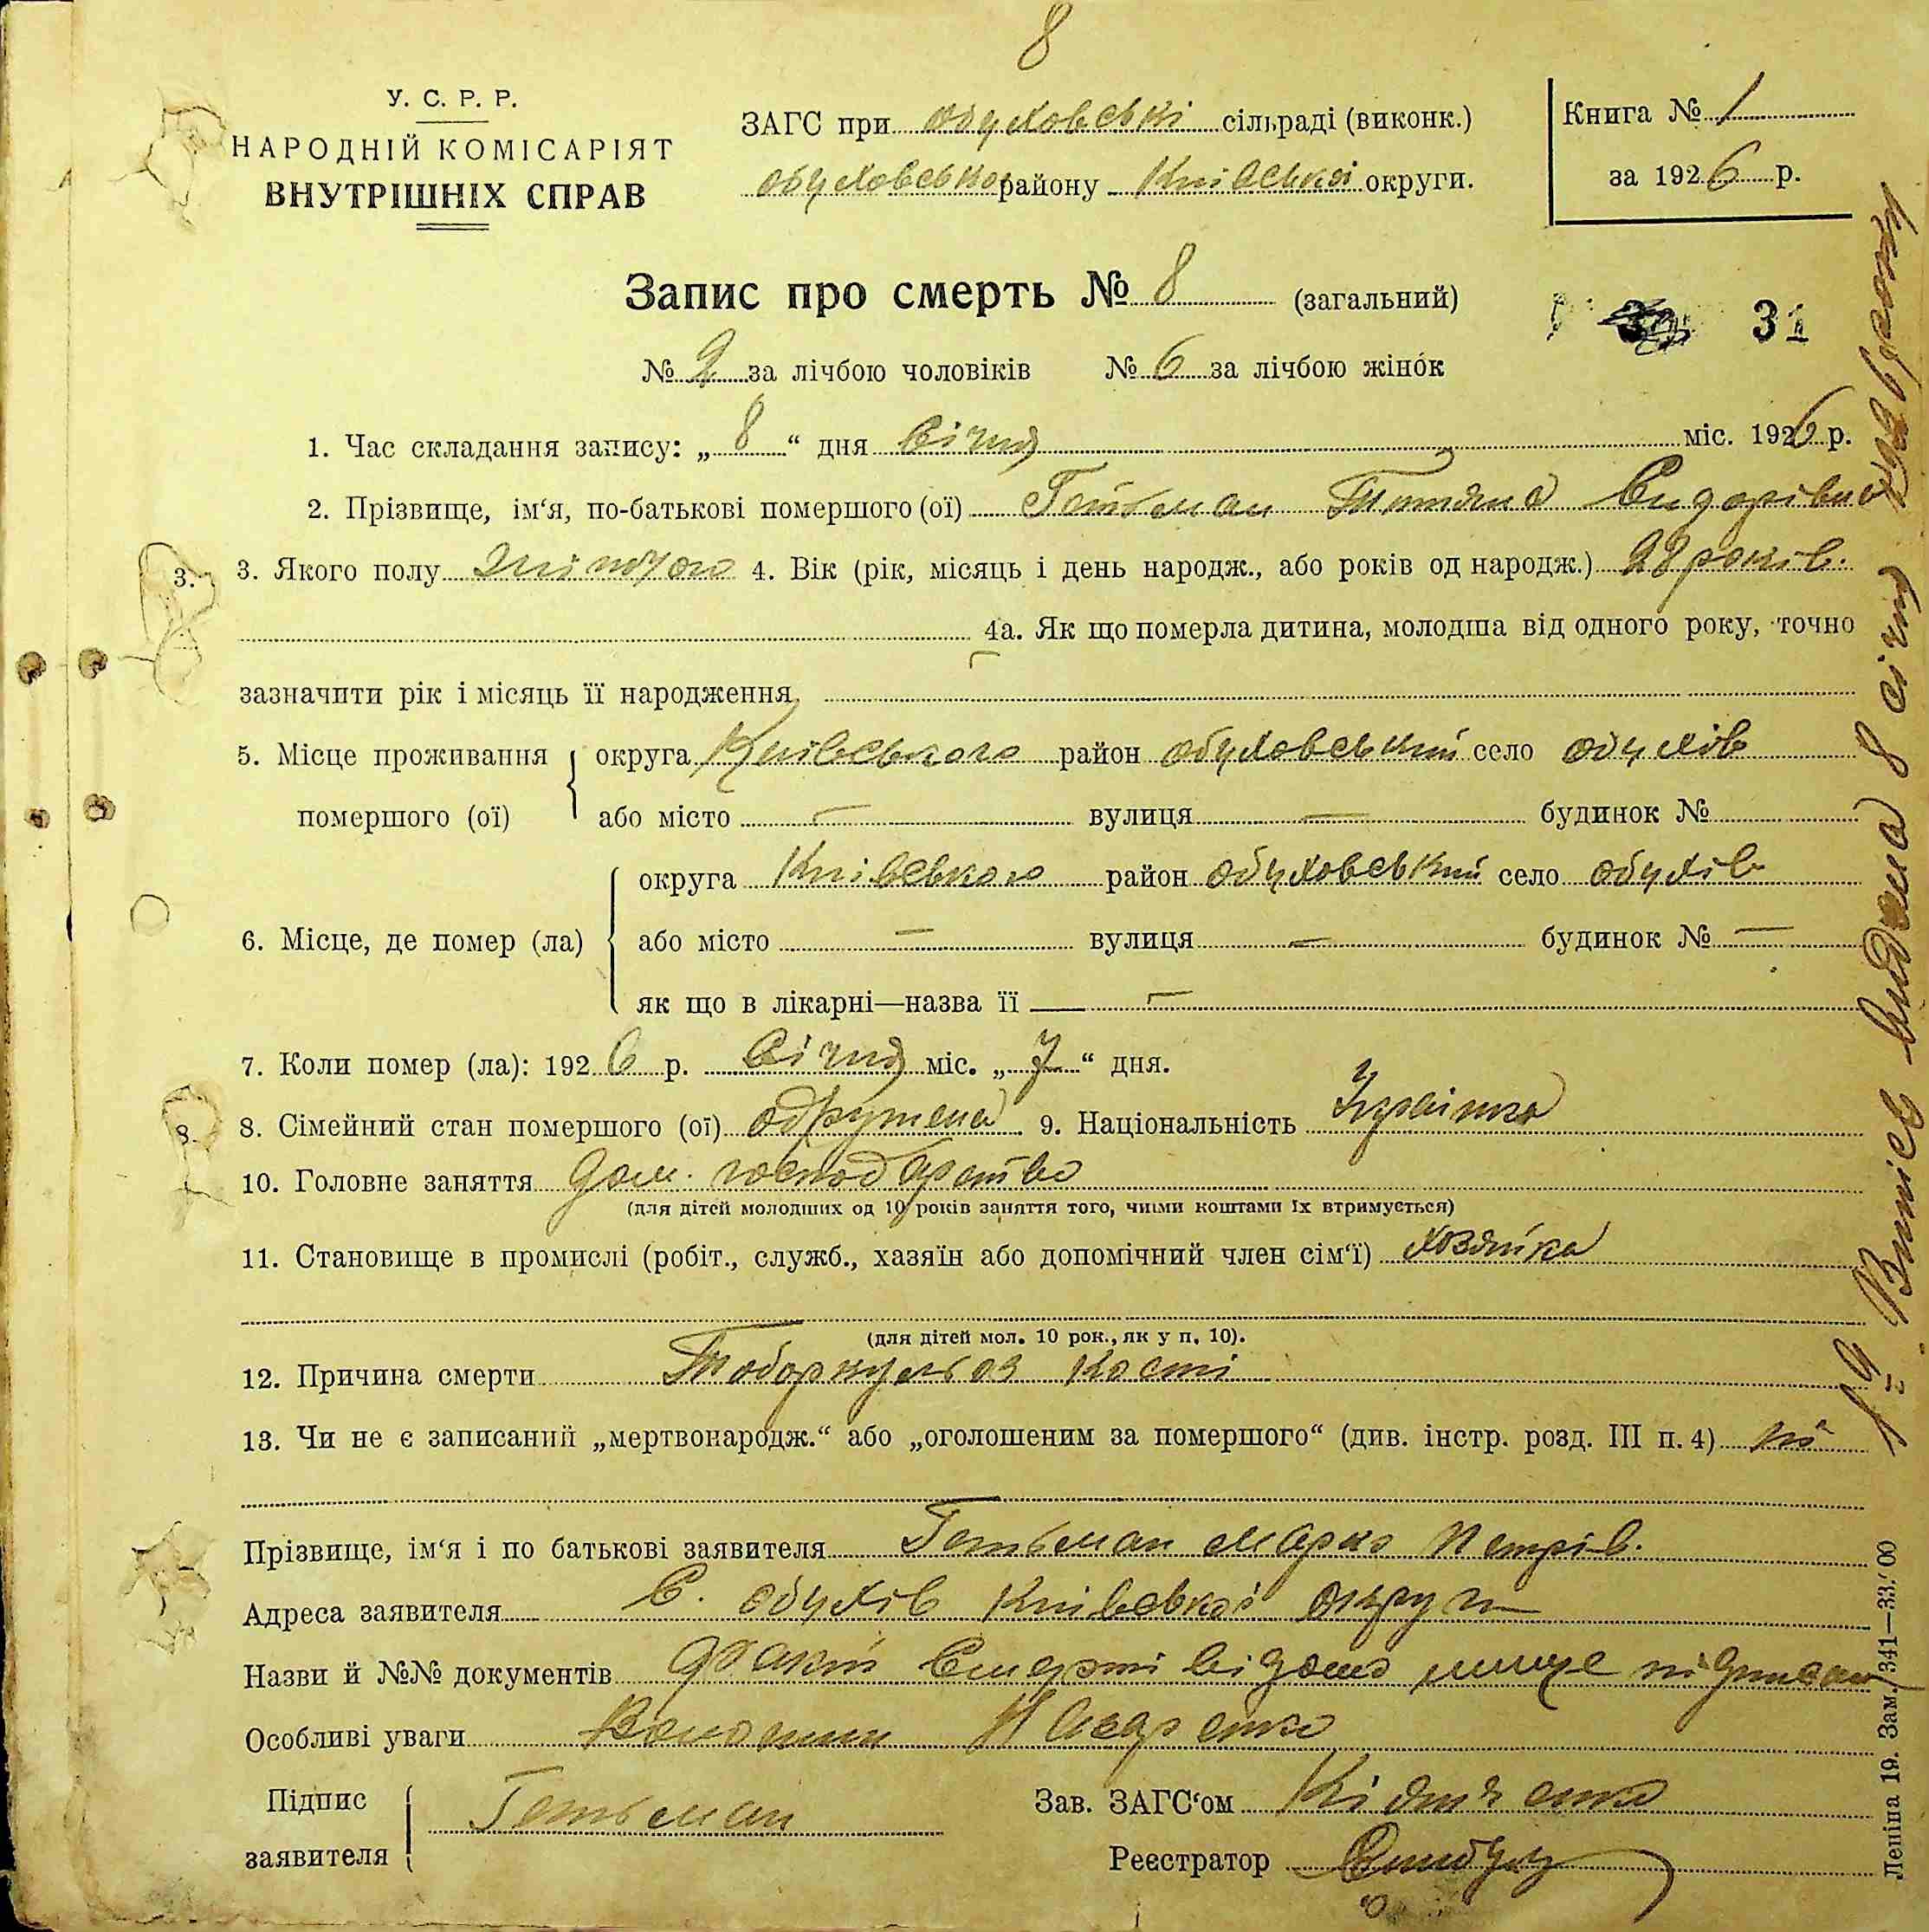 8
У. С. Р. Р.
НАРОДНІЙ КОМІСАРІЯТ
ВНУТРІШНІХ СПРАВ
ЗАГС при обуховські сільраді (виконк.)
обуховського району Київської округи.
Книга № 1
за 1926 р.
Запис про смерть № 8 (загальний)
31
№ 2 за лічбою чоловіків № 6 за лічбою жінок
1. Час складання запису: „ 8 “ дня Січня міс. 1926 р.
2. Прізвище, ім‘я, по-батькові помершого (ої) Гетьман Титяна Сидорівна
3. 3. Якого полу жіночого 4. Вік (рік, місяць і день народж., або років од народж.) 28 років.
4а. Як що померла дитина, молодша від одного року, точно
зазначити рік і місяць її народження
5. Місце проживання помершого (ої) округа Київського район обуховський село обухів
або місто — вулиця — будинок №
6. Місце, де помер (ла) округа Київського район обуховський село обухів
або місто — вулиця — будинок № —
як що в лікарні—назва її —
7. Коли помер (ла): 1926 р. Січня міс. „ 7 “ дня.
8. 8. Сімейний стан помершого (ої) одружена 9. Національність Українка
10. Головне заняття Дом. господарство
(для дітей молодших од 10 років заняття того, чиїми коштами їх втримується)
11. Становище в промислі (робіт., служб., хазяїн або допомічний член сім‘ї) хозяйка
(для дітей мол. 10 рок., як у п. 10).
12. Причина смерти Тоборкульоз кості
13. Чи не є записаний „мертвонародж.“ або „оголошеним за помершого“ (див. інстр. розд. III п. 4) ні
Прізвище, ім‘я і по батькові заявителя Гетьман Марко Петрів.
Адреса заявителя С. обухів Київської округи
Назви й №№ документів Факт Смерті відомо нище підписан
Особливі уваги Назаренко
Підпис заявителя Гетьман
Зав. ЗАГС‘ом
Реєстратор
Випись видана 8 січня 1926 року
Леніна 19. Зам. 341—33.000